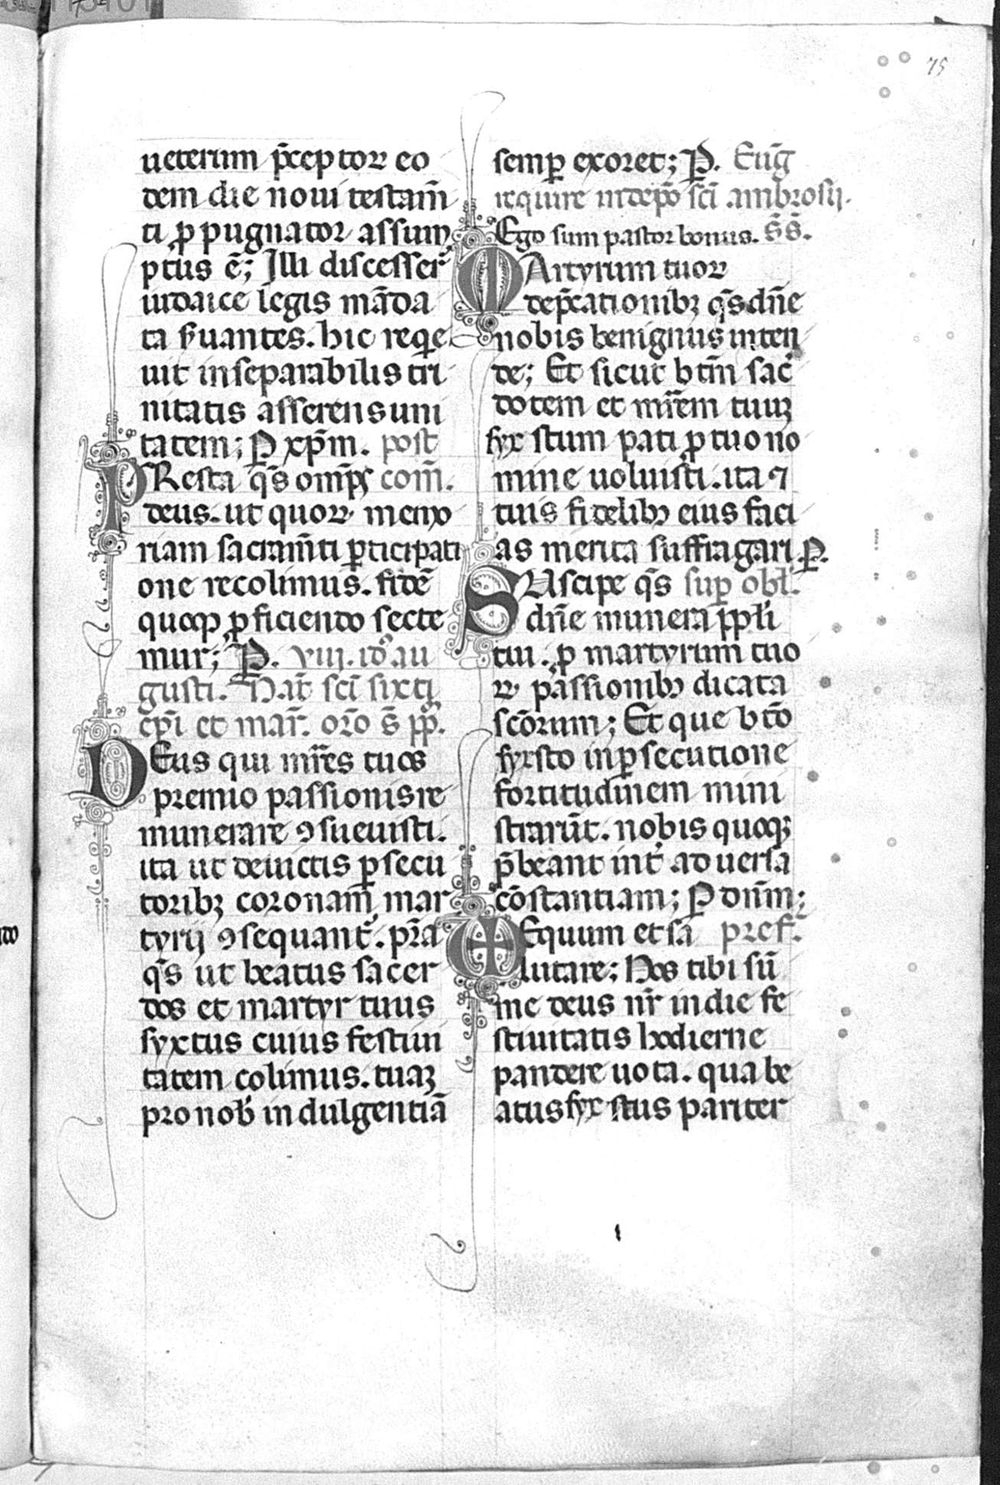 75
ueterum p̄ceptor eo
dem die noui testam̄
ti ꝓpugnator assum
ptus ē; Illi discesser̄
iudaice legis mā̄da
ta s̄uantes. hic reqͥe
uit inseparabilis tri
nitatis asserens uni
tatem; P xp̄m. post
PResta q̄s omp̄s com̄.
deus. ut quoꝝ memo
riam sacram̄ti ꝑticipati
one recolimus. fidē
quoqꝫ ꝓficiendo secte
mur; P. VIII. id᷒ au
gusti. Nat̄ sc̄i sixti
ep̄i et mar̄. orō s̄ pp̄.
DEus qui mr̄es tuos
premio passionis re
munerare ꝯsueuisti.
ita ut deuictis ꝑsecu
toribꝫ coronam mar
tyrij ꝯsequant᷑. pr̄a
q̄s ut beatus sacer
dos et martyr tuus
syxtus cuius festiui
tatem colimus. tuaꝫ
pro nob̄ indulgentiā
semꝑ exoret; P. Euḡ
require in depo᷒ sc̄i ambrosij.
Ego sum pastor bonus. s̄ s̄.
MArtyrum tuoꝝ
dep̄cationibꝫ q̄s dn̄e
nobis benignus inten
de; Et sicut btm̄ sac̄
dotem et mr̄em tuuꝫ
syxstum pati ꝓ tuo no
mine uoluisti. ita ⁊
tuis fidelibꝫ eius faci
as merita suffragari P.
SUscipe q̄s suꝑ obl̄.
dn̄e munera pp̄li
tui. ꝓ martyrum tuo
ꝝ passionibꝫ dicata
sc̄orum; Et que btō
syxsto in ꝑsecutione
fortitudinem mini
strarūt. nobis quoqꝫ
p̄beant int᷑ aduersa
cōstantiam; P dn̄m;
EQuum et sa pref̄.
lutare; Nos tibi sū
me deus nr̄ in die fe
stiuitatis hodierne
pandere uota. qua be
atus syxstus pariter